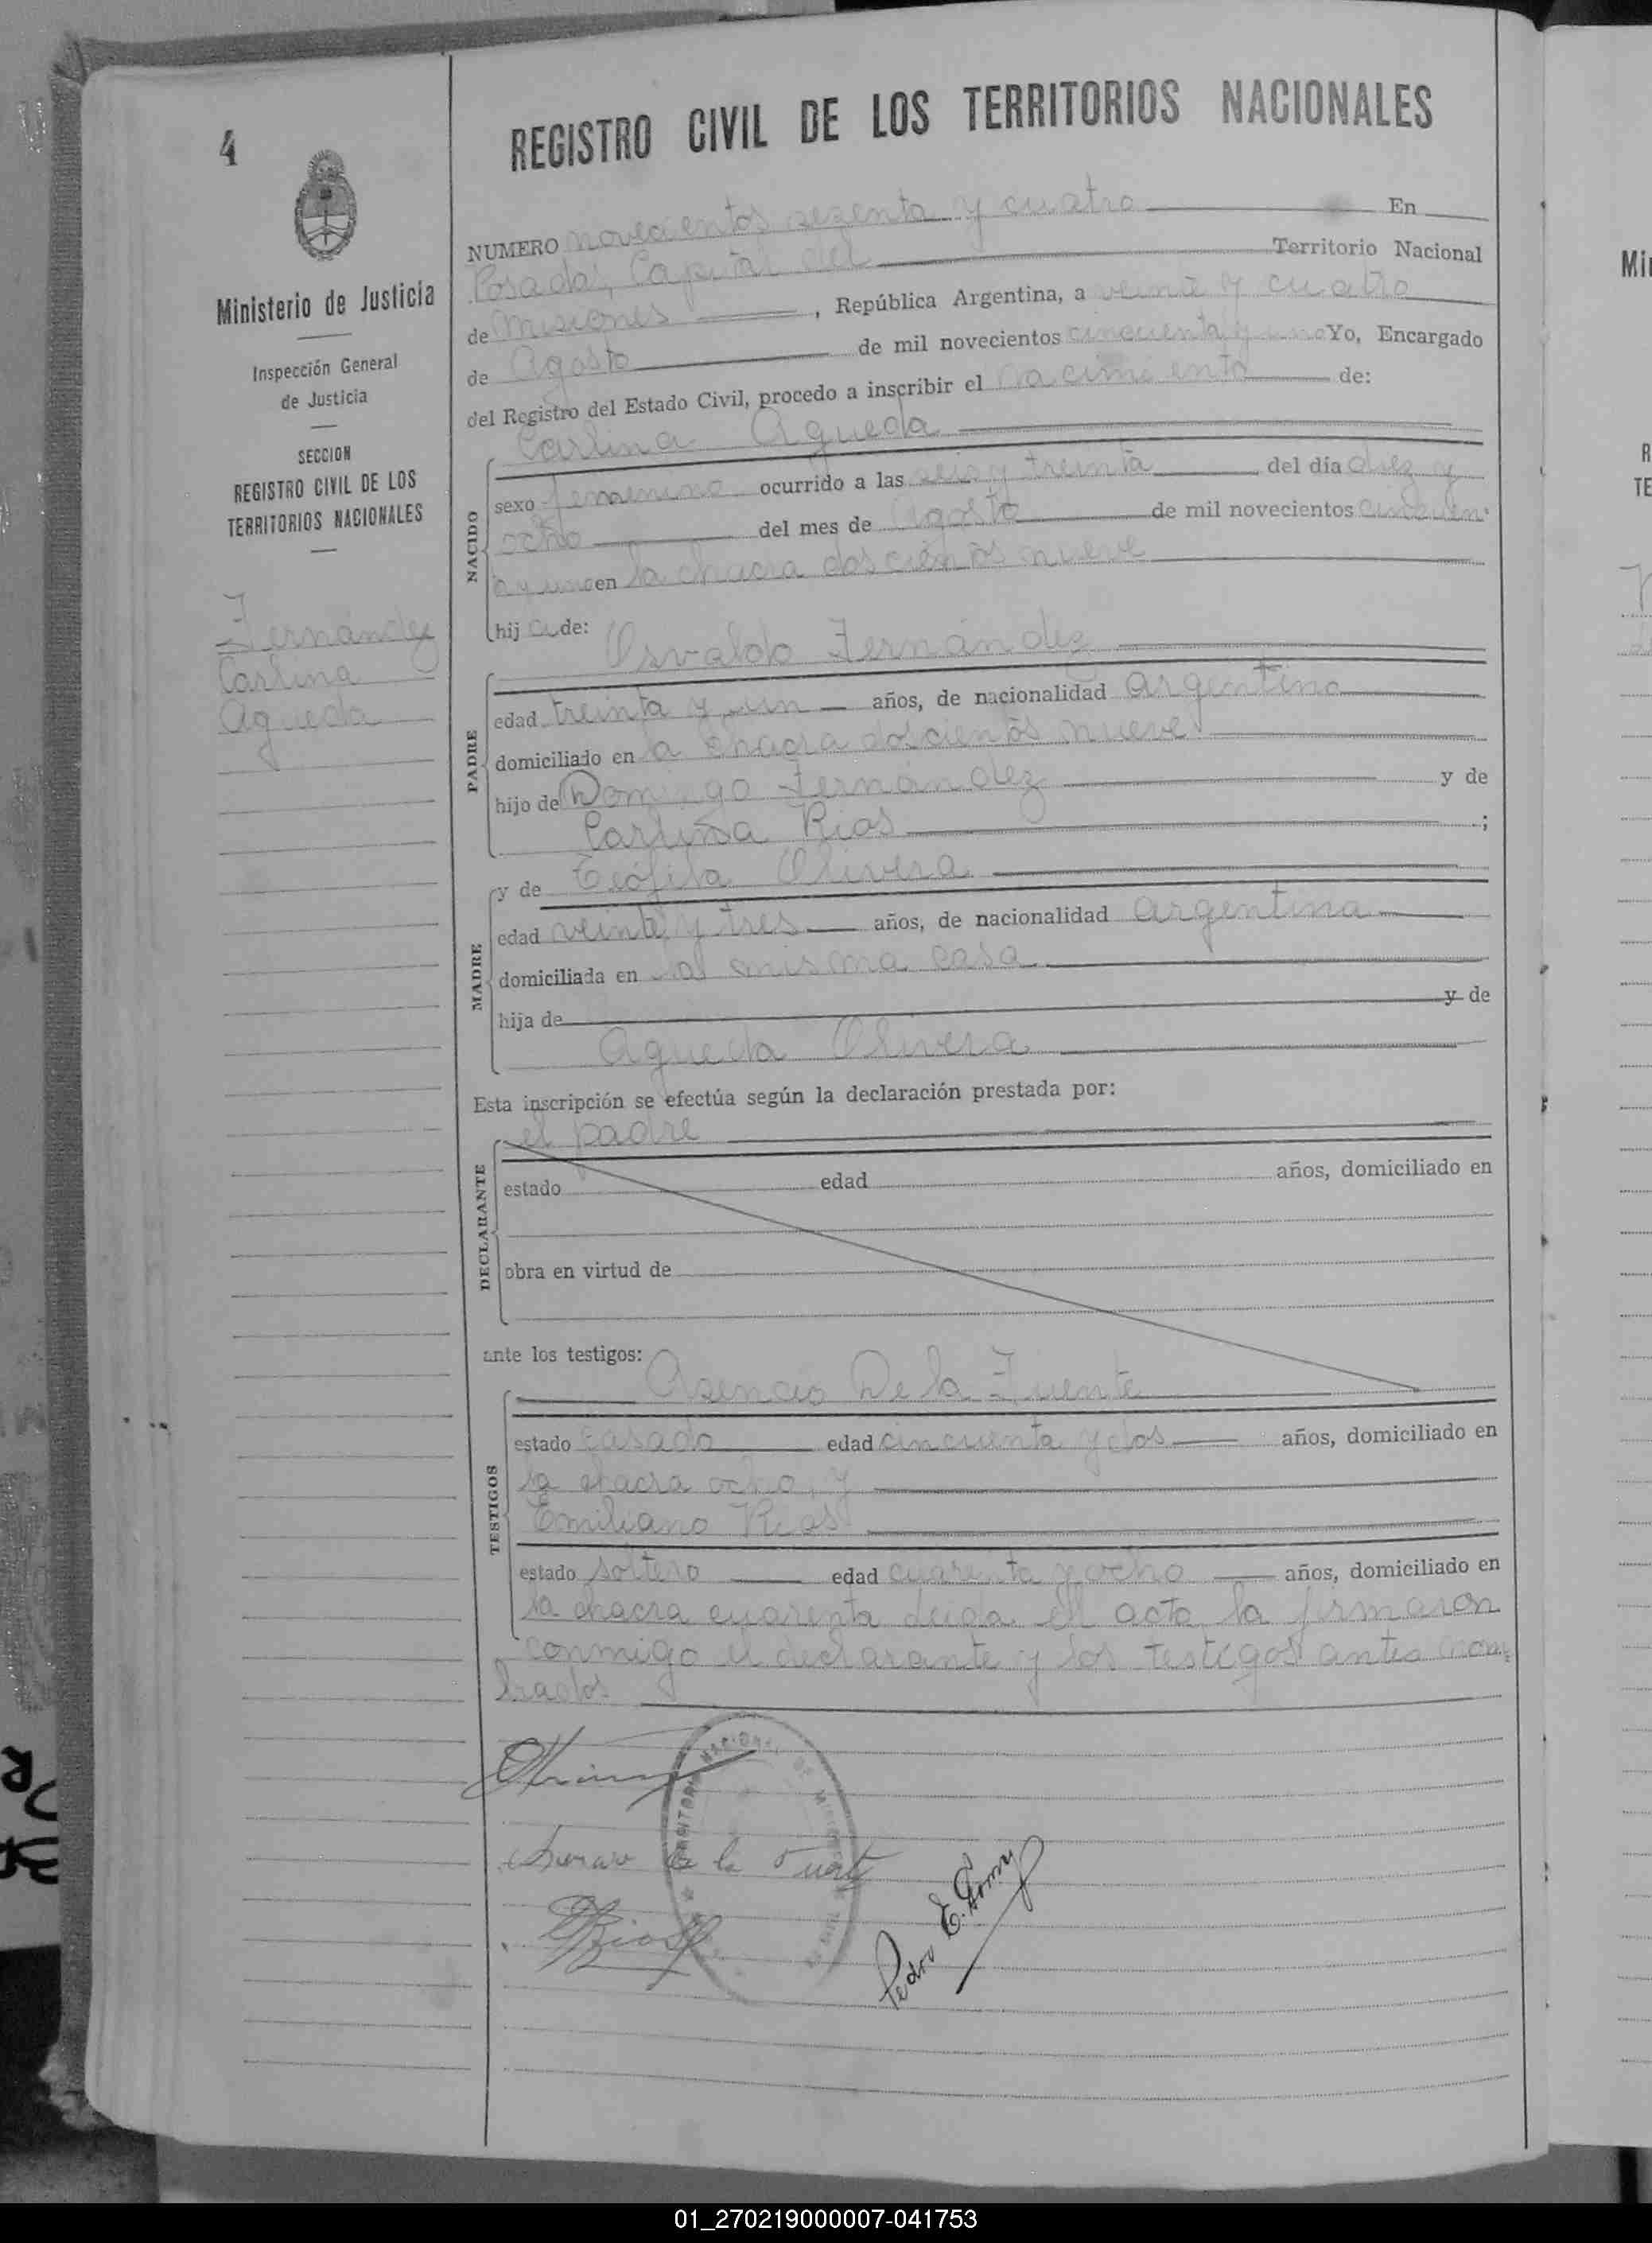 4
REGISTRO CIVIL DE LOS TERRITORIOS NACIONALES
Ministerio de Justicia
Inspección General
de Justicia
SECCION
REGISTRO CIVIL DE LOS
TERRITORIOS NACIONALES
Fernández
Carlina
Agueda
NUMERO novecientos sezenta y cuatro En
Posadas, Capital del Territorio Nacional
de Misiones, República Argentina, a veinte y cuatro
de Agosto de mil novecientos cincuenta y uno Yo, Encargado
del Registro del Estado Civil, procedo a inscribir el nacimiento de:
Carlina Agueda
NACIDO
sexo femenino ocurrido a las seis y treinta del día diez y
ocho del mes de Agosto de mil novecientos cincuen
ta y uno en la chacra doscientos nueve
hija de:
Osvaldo Fernández
PADRE
edad treinta y un años, de nacionalidad Argentino
domiciliado en la chacra doscientos nueve
hijo de Domingo Fernández y de
Carlina Rios;
MADRE
y de Teófila Olivera
edad veinte y tres años, de nacionalidad Argentina
domiciliada en la misma casa
hija de y de
Agueda Olivera
Esta inscripción se efectúa según la declaración prestada por:
el padre
DECLARANTE
estado edad años, domiciliado en
obra en virtud de
ante los testigos:
Asencio De la Fuente
TESTIGOS
estado casado edad cincuenta y dos años, domiciliado en
la chacra ocho, y
Emiliano Rios
estado soltero edad cuarenta y ocho años, domiciliado en
la chacra cuarenta Leida el acta la firmaron
conmigo el declarante y los testigos antes nom
brados
de la Fuente
ERios
Pedro E.
Mi
R
TE
01_270219000007-041753